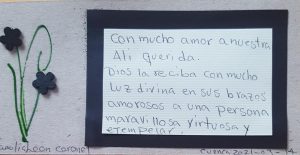 Con mucho amor a nuestra
Ali querida.
Dios la reciba con mucho
luz divina en sus brazos
amorosos a una persona
maravillosa virtuosa y
ejemplar.
Cuenca 2021-09-